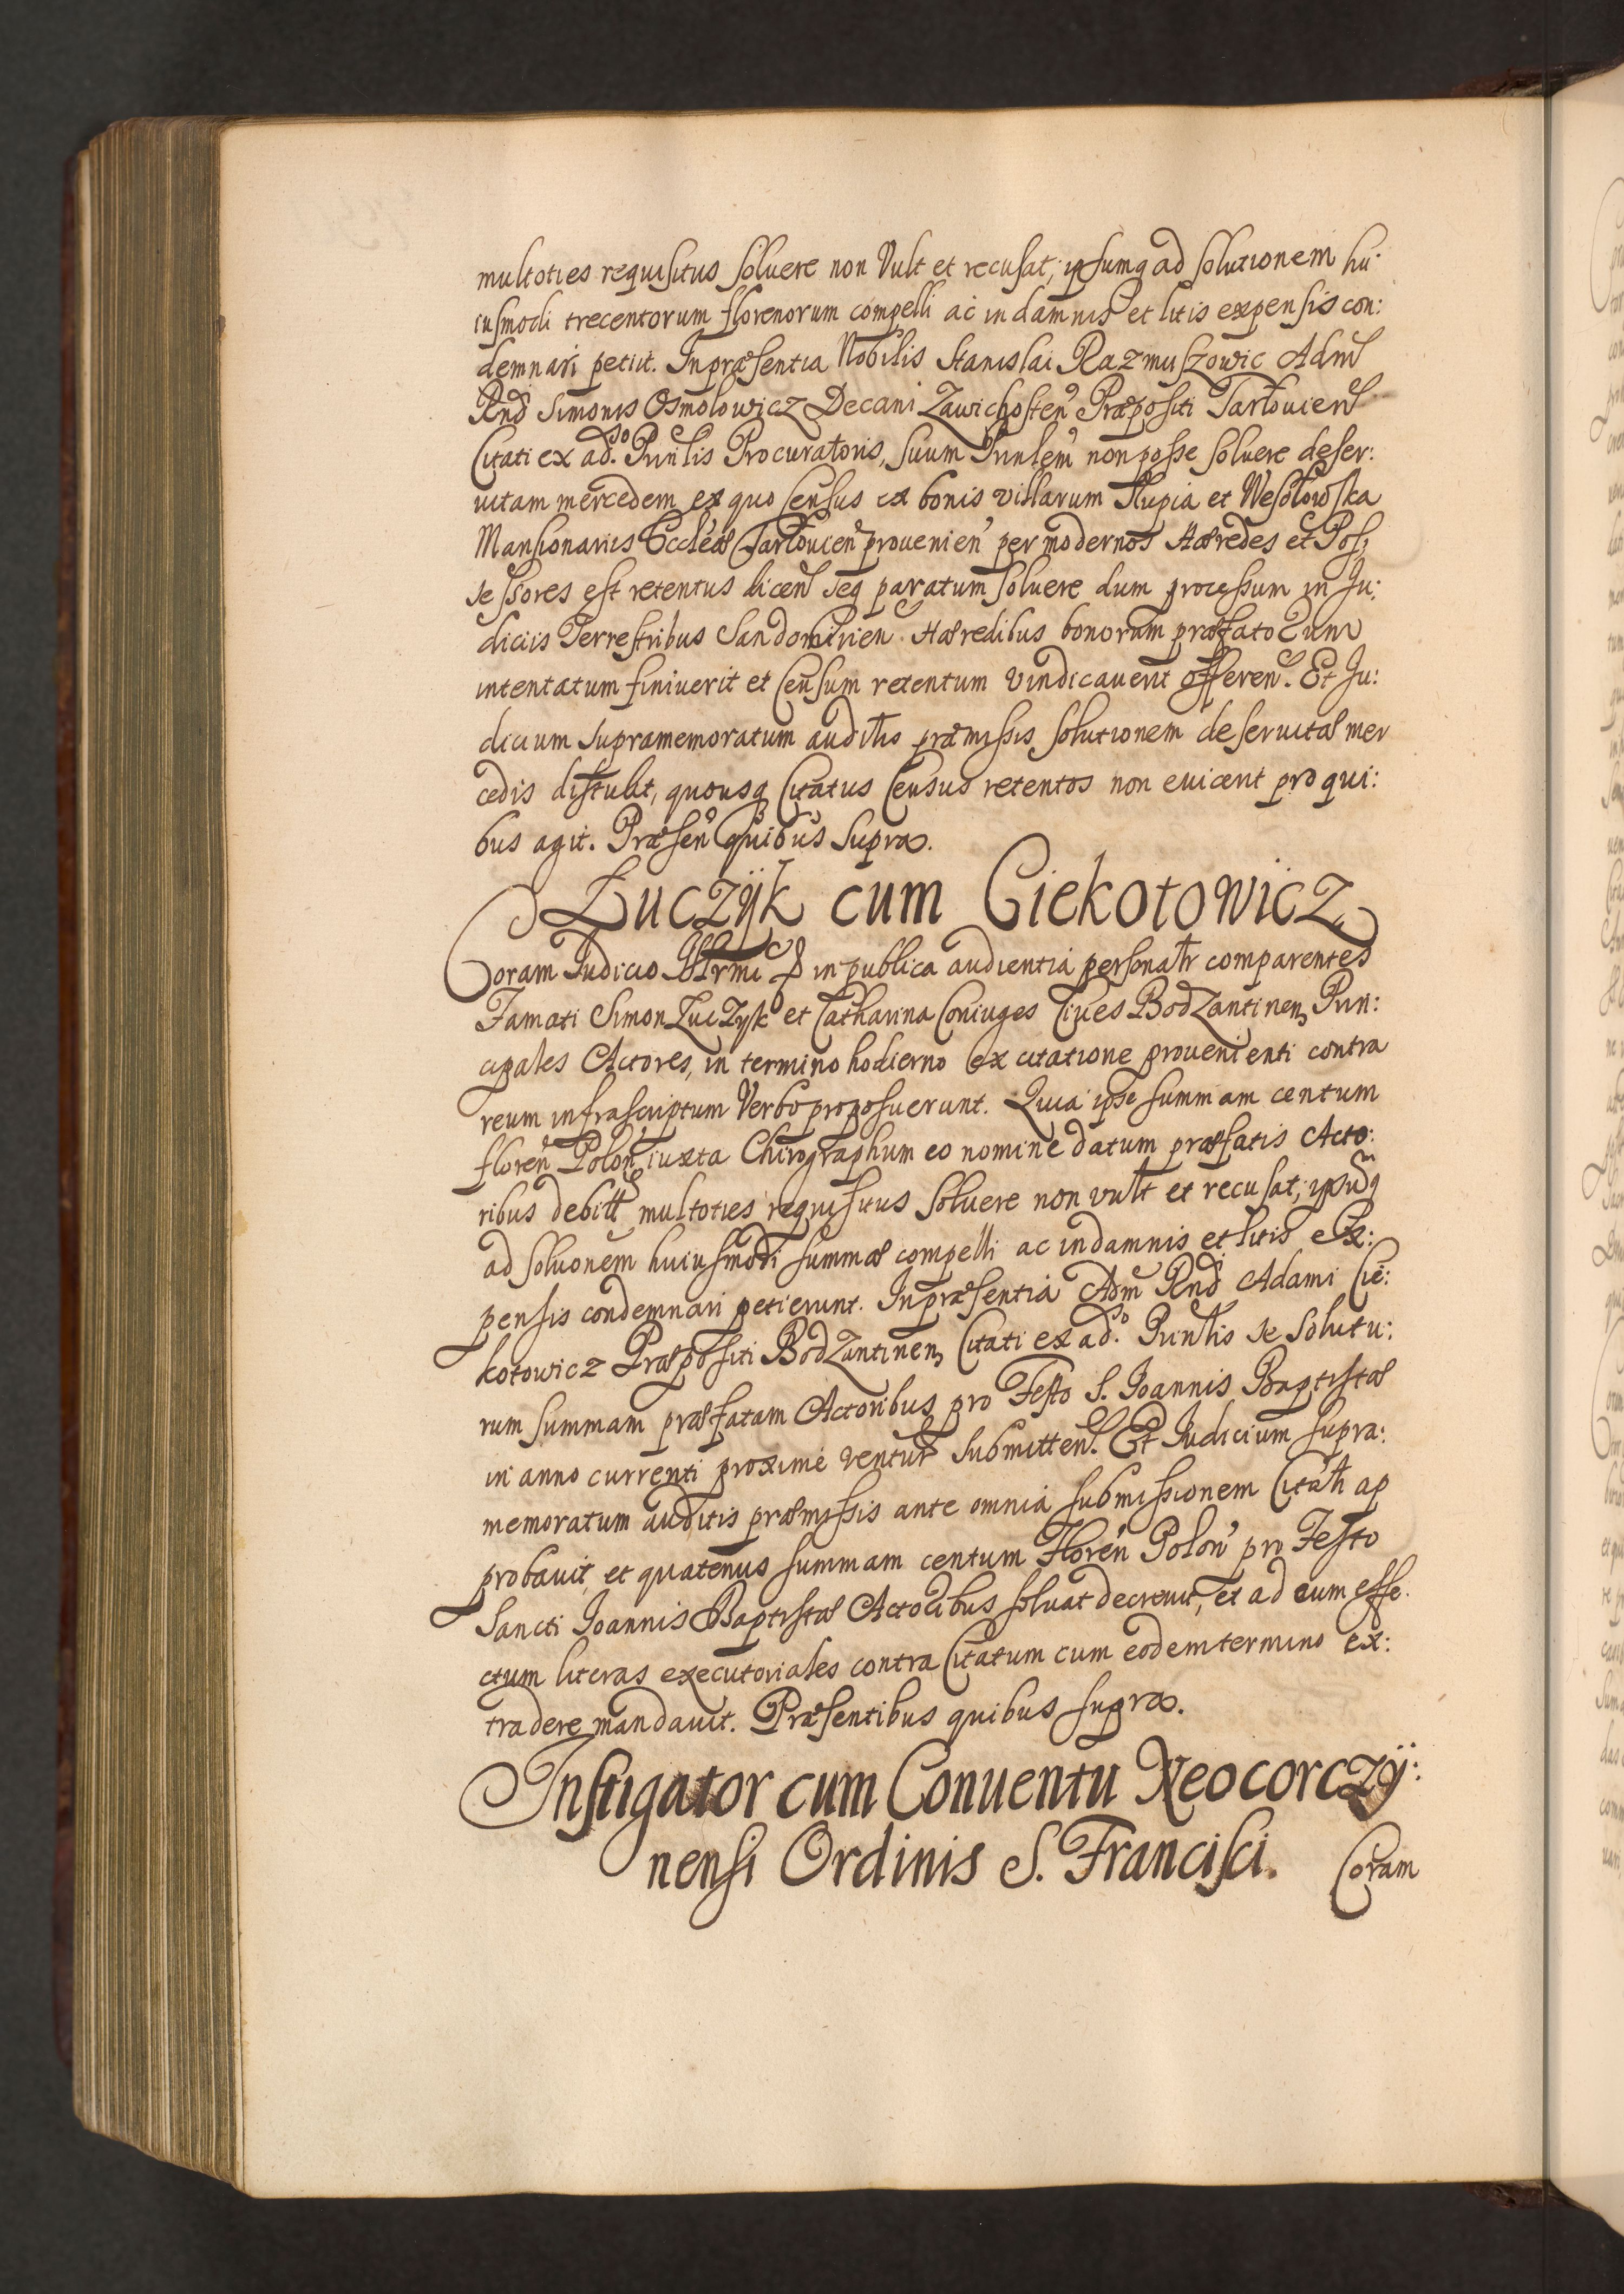 multoties requisitus soluere non Vult et recusat; ipsumq ad solutionem hu:
iusmodi trecentorum florenorum compelli ac in damnis et litis expensis con:
demnari petiit. In præsentia Nobilis Stanislai Razmuszowic Adm
Rnd Simonis Osmolowicz Decani Zawichosten Præpositi Tarlouien
Citati ex ad.so Prinlis Procuratoris, suum Prinlem non posse soluere deser:
uitam mercedem ex quo Census ex bonis villarum Slupia et Wesołowska
Mansionariis Eccleæ Tarlouien prouenien per modernos Hæredes et Pos;
sessores est retentus dicen seq paratum soluere dum processum in Ju:
diciis Terrestribus Sandomirien Hæredibus bonorum præfatorum
intentatum finiuerit et Censum retentum vindicauerit offeren. Et Ju:
dicium supramemoratum auditis præmissis solutionem deseruitæ mer
cedis distulit, quousq Citatus Census retentos non euicerit pro qui:
bus agit. Præsen quibus supra.
Łuczÿk cum Ciekotowicz
Coram Judicio Illrmi D in publica audientia personalr comparentes
Famati Simon Łuczyk et Catharina Coniuges Ciues Bodzantinen Prin:
cipales Actores, in termino hodierno ex citatione prouenienti contra
reum infrascriptum Verbo proposuerunt. Quia ipse summam centum
floren Polon iuxta Chirographum eo nomine datum præfatis Acto:
ribus debit multoties requisitus soluere non vult et recusat; ipsumq
ad soluonem huiusmodi summæ compelli ac in damnis et litis ex:
pensis condemnari petierunt. In præsentia Adm Rnd Adami Cie:
kotowicz Præpositi Bodzantinen Citati ex ad.so Prinlis se solutu:
rum summam præfatam Actoribus pro Festo S. Joannis Baptistæ
in anno currenti proxime ventur submitten. Et Judicium supra:
memoratum auditis præmissis ante omnia submissionem Citati ap
probauit, et quatenus summam centum Floren Polon pro Festo
Sancti Joannis Baptistæ Actoribus soluat decreuit, et ad eum effe:
ctum literas executoriales contra Citatum cum eodem termino ex:
tradere mandauit. Præsentibus quibus supra.
Instigator cum Conuentu Neocorczÿ:
nensi Ordinis S. Francisci.
Coram